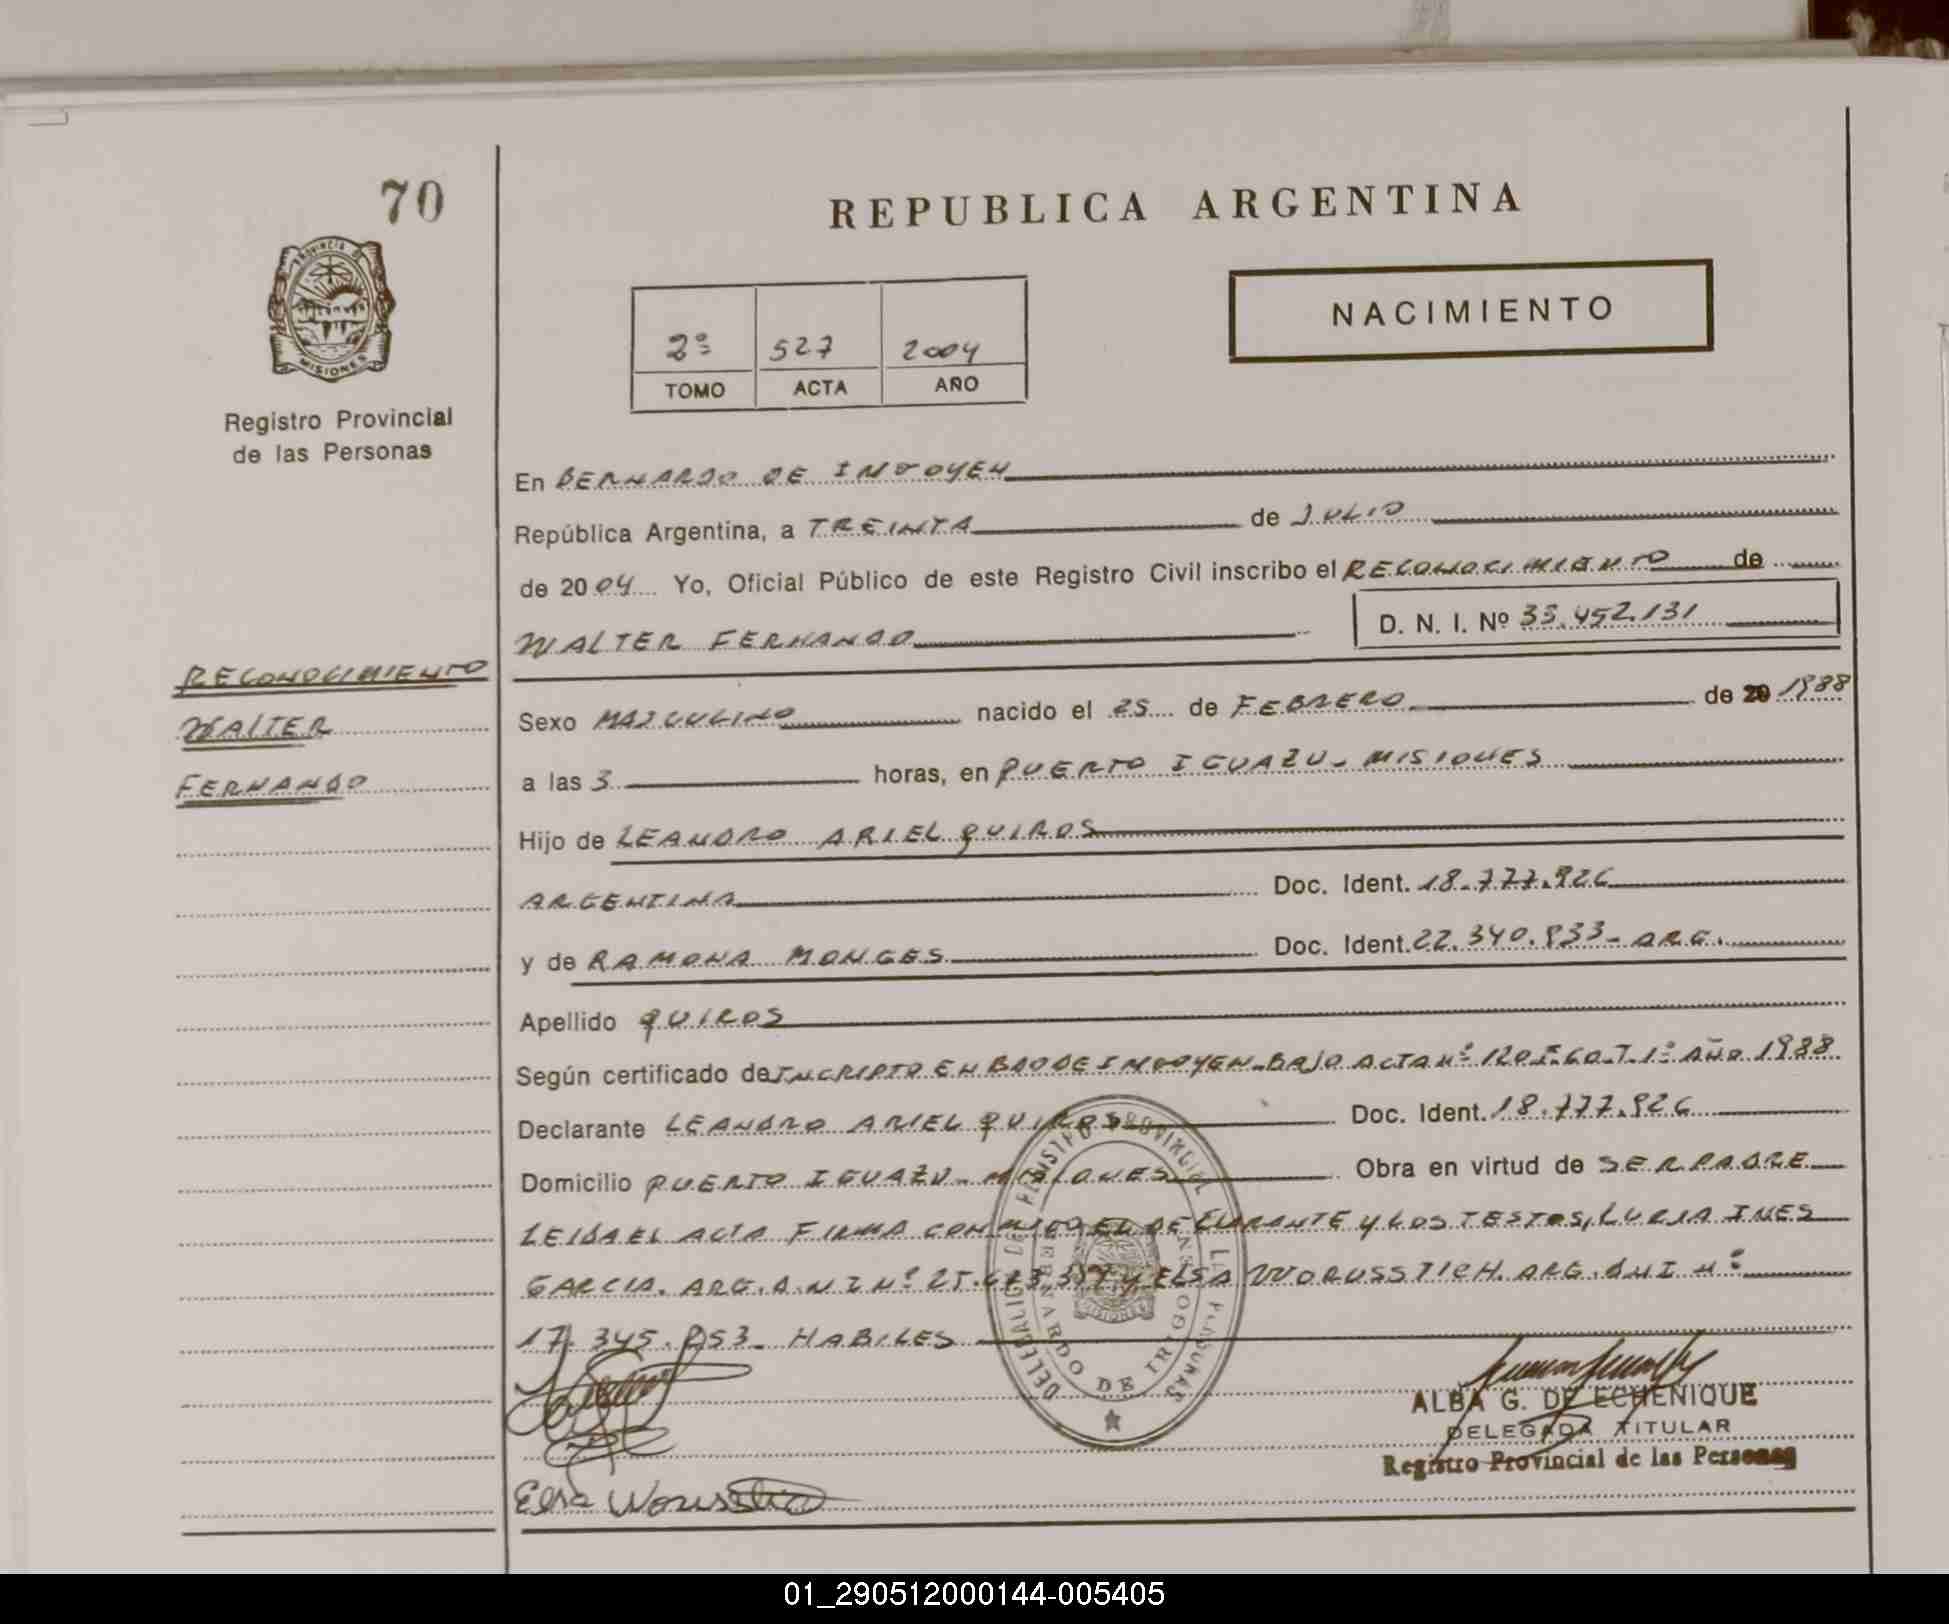 70
REPUBLICA ARGENTINA
PROVINCIA DE
MISIONES
Registro Provincial
de las Personas
NACIMIENTO
2º 527 2004
TOMO ACTA AÑO
En BERNARDO DE IRIGOYEN
República Argentina, a TREINTA de JULIO
de 2004 Yo, Oficial Público de este Registro Civil inscribo el RECONOCIMIENTO de
WALTER FERNANDO D. N. I. Nº 33.452.131
RECONOCIMIENTO
WALTER
FERNANDO
Sexo MASCULINO nacido el 25 de FEBRERO de 20 1988
a las 3 horas, en PUERTO IGUAZU - MISIONES
Hijo de LEANDRO ARIEL QUIROS
ARGENTINA Doc. Ident. 18.777.926
y de RAMONA MONGES Doc. Ident. 22.340.833 - ARG.
Apellido QUIROS
Según certificado de INCRIPTO EN BDO DE IRIGOYEN - BAJO ACTA Nº 120 F. 60 T. 1º AÑO 1988
Declarante LEANDRO ARIEL QUIROS Doc. Ident. 18.777.926
Domicilio PUERTO IGUAZU - MISIONES Obra en virtud de SER PADRE
LEIDA EL ACTA FIRMA CONMIGO EL DECLARANTE Y LOS TESTOS, LUCIA INES
GARCIA. ARG. D.N.I Nº 25. Y ELSA WORUSSTICH. ARG. DNI Nº
17.345.853 - HABILES
DELEGACION DEL REGISTRO PROVINCIAL DE LAS PERSONAS
BERNARDO DE IRIGOYEN
MISIONES
ALBA G. DE ECHENIQUE
DELEGADA TITULAR
Registro Provincial de las Personas
Elsa
01_290512000144-005405